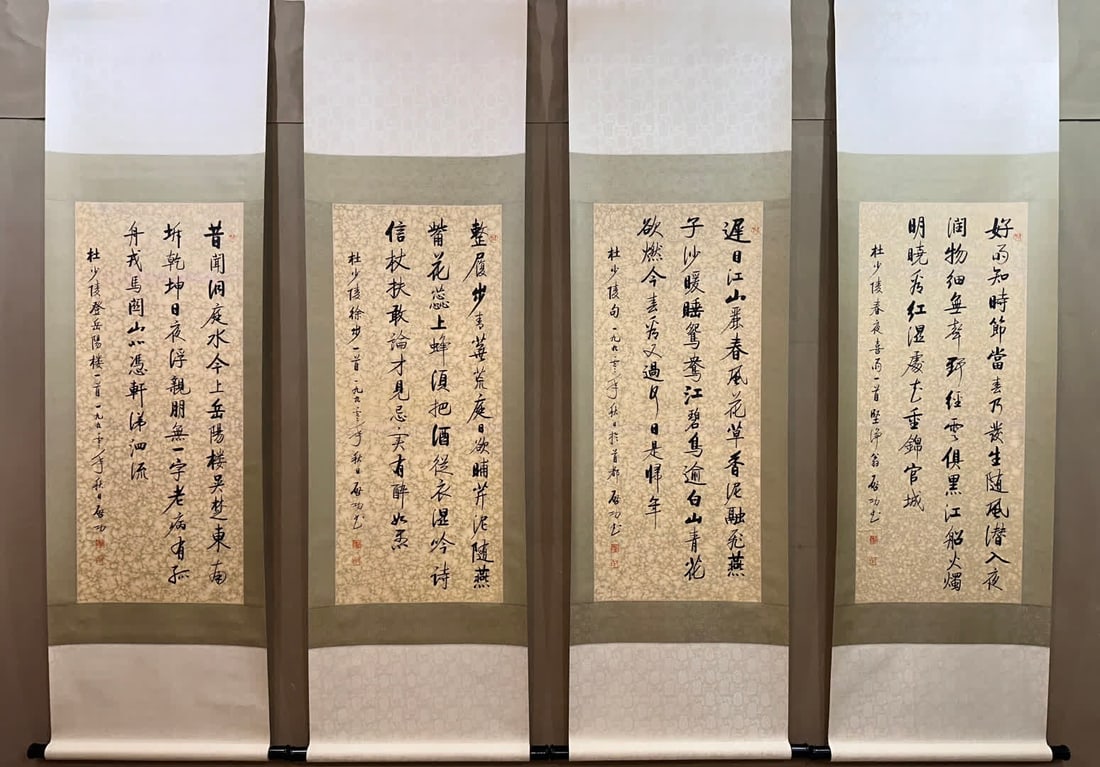 好雨知時節當春乃發生随風潜入夜
润物细無聲野径雲俱黑江船火燭
明曉看红湿處花重錦官城
杜少陵春夜喜雨一首堅浄翁启功书
遲日江山麗春風花草香泥融飛燕
子沙暖睡鴛鴦江碧鳥逾白山青花
欲燃今春看又過何日是歸年
杜少陵句一九九年秋日於首都启功书
整履步青蕪荒庭日欲晡芹泥随燕
觜花蕊上蜂須把酒從衣湿吟诗
信杖扶敢論才見忌実有醉如愚
杜少陵徐步一首一九九年秋日启功书
昔聞洞庭水今上岳陽楼吴楚東南
坼乾坤日夜浮親朋無一字老病有孤
舟戎馬関山北憑軒涕泗流
杜少陵登岳陽楼一首一九九年秋日启功